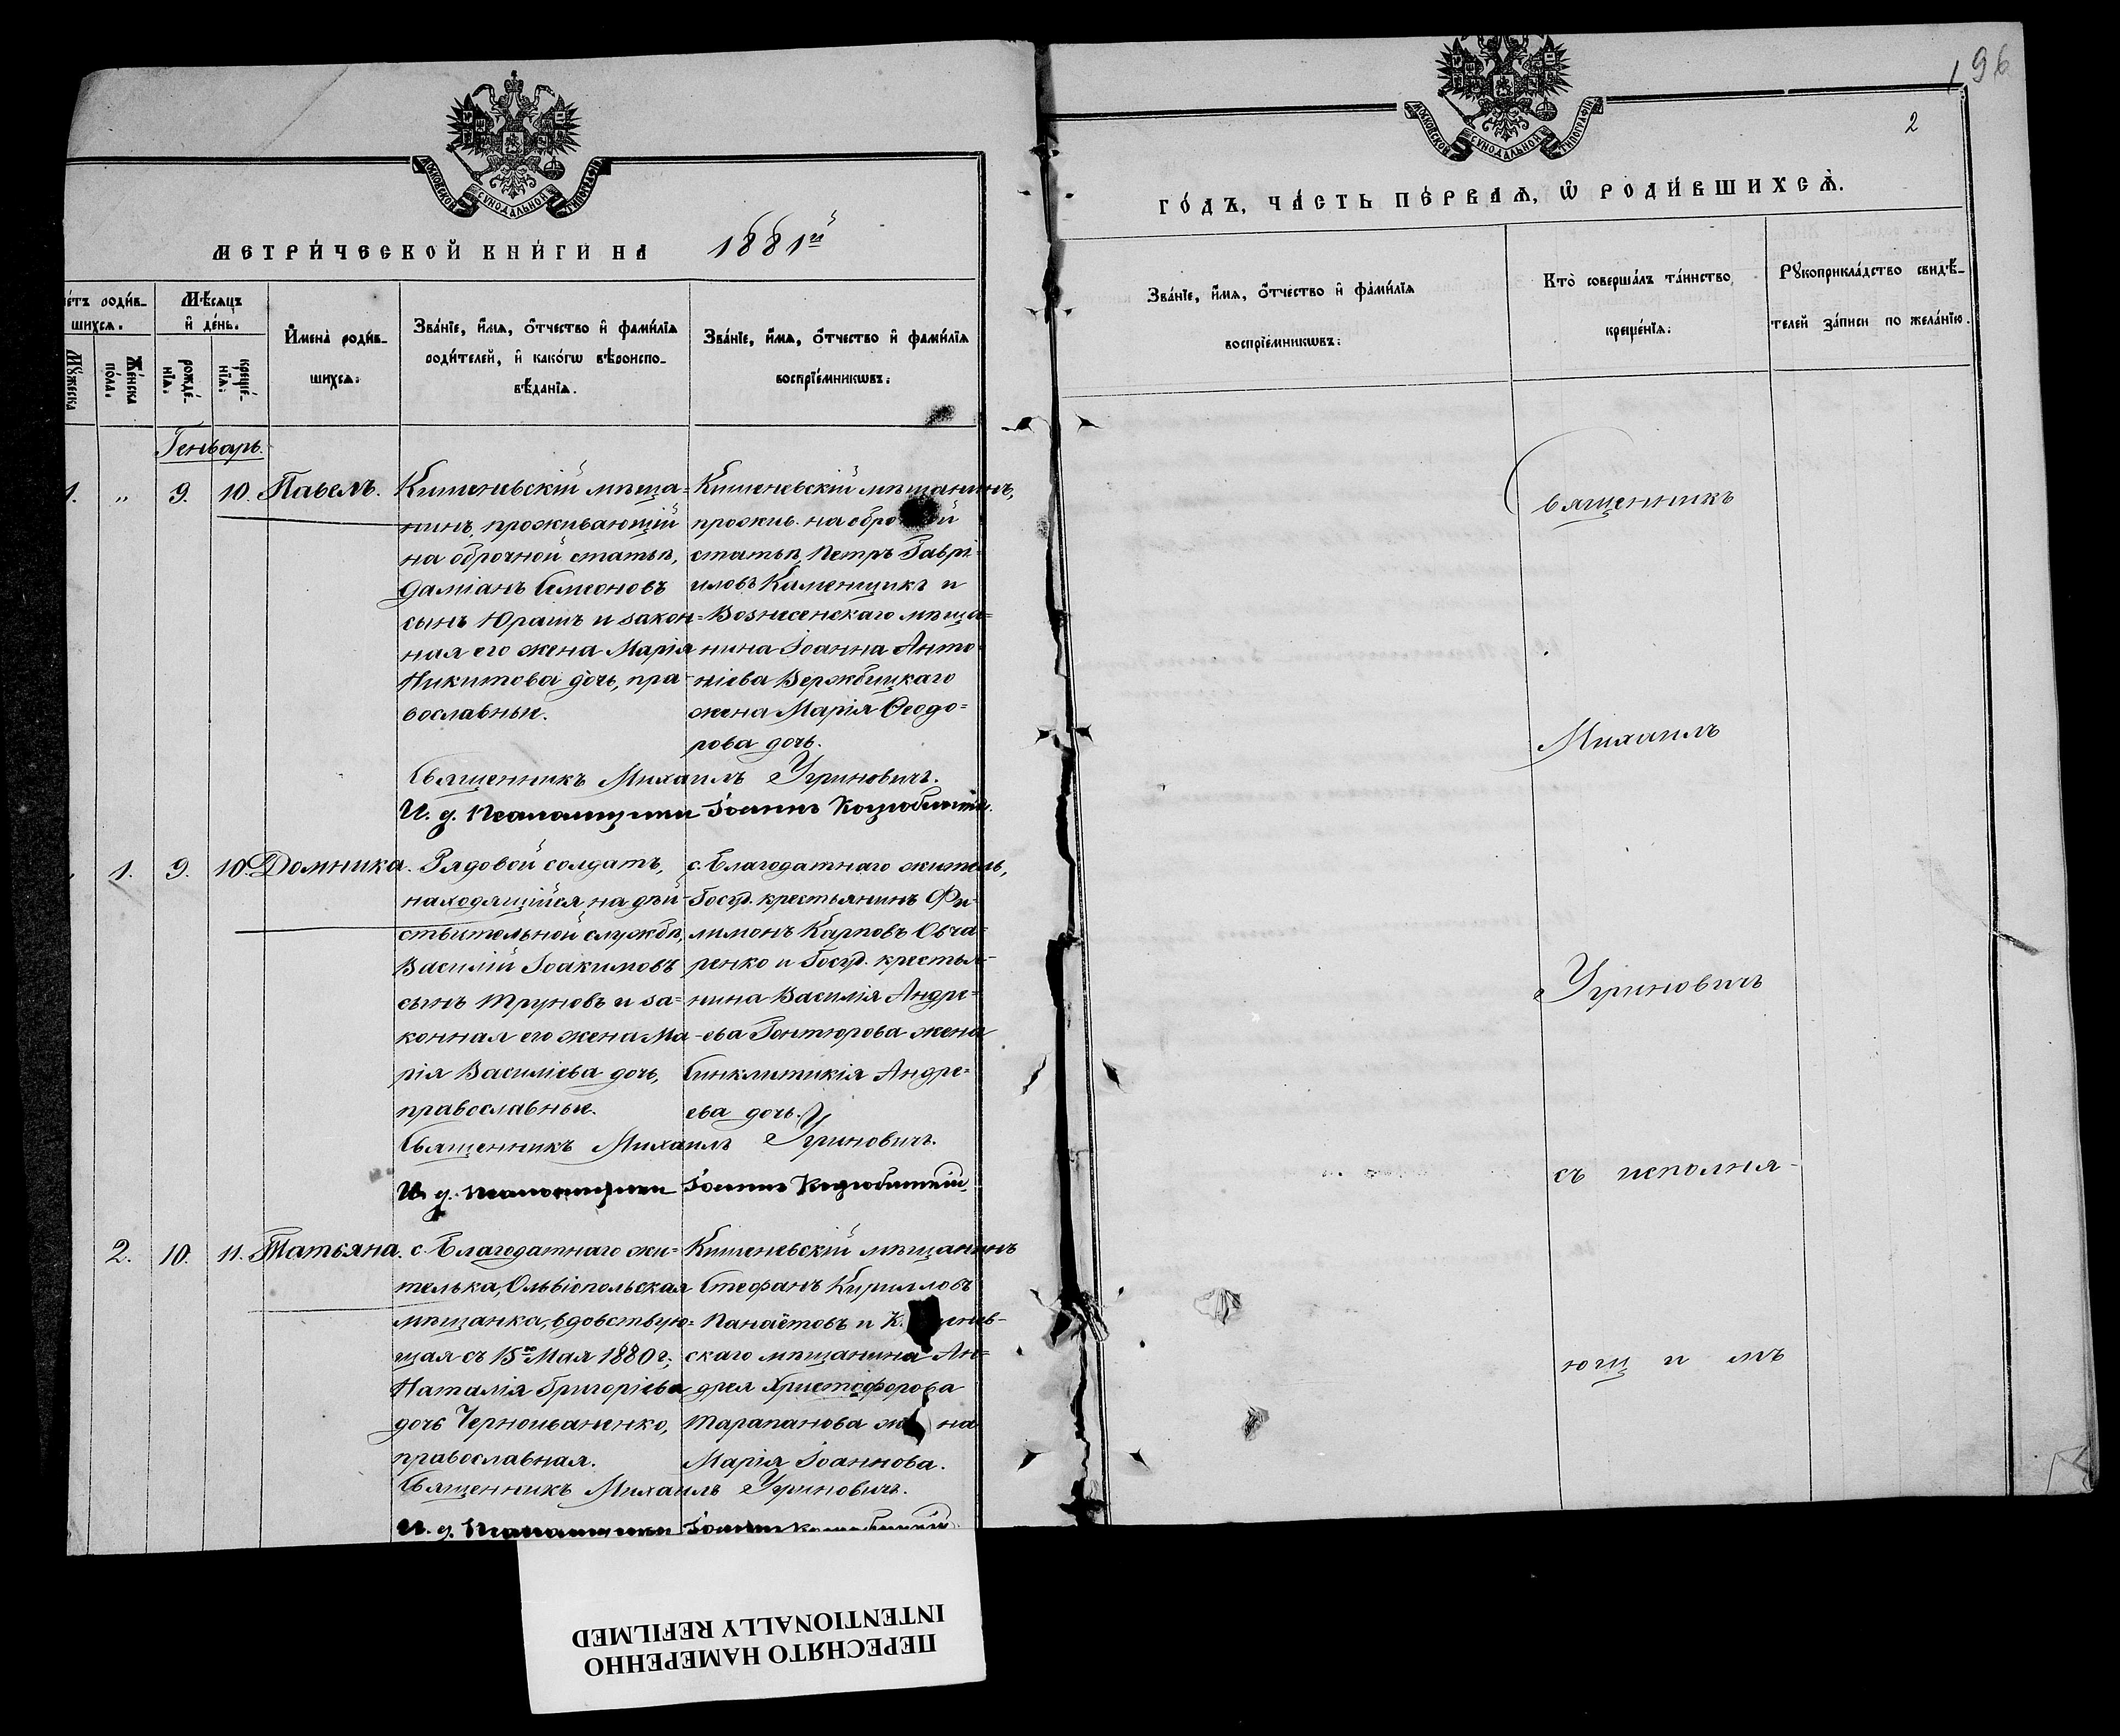 МОСКОВСКОЙ СУНОДАЛЬНОЙ ТИПОГРАФІИ
МЕТРИ́ЧЕСКОЙ КНИ́ГИ НА 1881й
Мѣ́сяцъ и҆ де́нь.
шихсѧ.
Мꙋ́жеска
Же́нска по́ла.
рожде́-нїѧ.
креще́-нїѧ.
И҆мена̀ роди́в-
шихсѧ.
Зва́нїе, и҆́мѧ, ѻ҆́тчество и҆ фами́лїѧ
роди́телей, и҆ како́гѡ вѣроиспо-
вѣ́данїѧ.
Зва́нїе, и҆́мѧ, ѻ҆́тчество и҆ фами́лїѧ
воспрїе́мникѡвъ.
Генварь.
1. „ 9. 10. Павелъ.
Кишеневскій мѣща-
нинъ, проживающій
на оброчной статьѣ,
Даміанъ Симеоновъ
сынъ Юрашъ и закон-
ная его жена Марія
Никитова дочь, пра-
вославные.
Кишеневскій мѣщанинъ,
прожив. на обро й
статьѣ, Петръ Гаврі-
иловъ Каменщикъ и
Вознесенскаго мѣща-
нина Іоанна Анто-
ніева Вержбицкаго
жена Марія Ѳеодо-
рова дочь.
Священникъ Михаилъ Угриновичъ.
И. д. Псаломщика Іоаннъ Коцюбинскій.
1. 9. 10. Домника.
Рядовой солдатъ,
находящійся на дѣй-
ствительной службѣ,
Василій Іоакимовъ
сынъ Труновъ и за-
конная его жена Ма-
рія Василіева дочь,
православные.
с. Благодатнаго житель,
Госуд. крестьянинъ Фи-
лимонъ Карповъ Овча-
ренко и Госуд. крестья-
нина Василія Андре-
ева Гонтюрова жена
Синклитикія Андре-
ева дочь.
Священникъ Михаилъ Угриновичъ.
И. д. Псаломщика Іоаннъ Коцюбинскій.
2. 10. 11. Татьяна.
с. Благодатнаго жи-
телька, Ольвіопольская
мѣщанка, вдовствую-
щая съ 15го Мая 1880 г.,
Наталія Григоріева
дочь Черноиваненко,
православная.
Кишеневскій мѣщанинъ
Стефанъ Кирилловъ
Панаётовъ и К енев-
скаго мѣщанина Ан-
дрея Христофорова
Тарапанова же на
Марія Іоаннова.
Священникъ Михаилъ Угриновичъ.
И. д. Псаломщика Іоаннъ Коцюбинскій.
196
2
МОСКОВСКОЙ СУНОДАЛЬНОЙ ТИПОГРАФІИ
ГО́ДЪ, ЧА́СТЬ ПЕ́РВАѦ, Ѡ҆ РОДИ́ВШИХСѦ.
Зва́нїе, и҆́мѧ, ѻ҆́тчество и҆ фами́лїѧ
воспрїе́мникѡвъ.
Кто̀ соверша́лъ та́инство
креще́нїѧ.
Рꙋкоприкла́дство свидѣ́-
телей за́писи по жела́нїю.
Священникъ
Михаилъ
Угриновичъ
съ исполня-
ющ и мъ
ПЕРЕСНЯТО НАМЕРЕННО
INTENTIONALLY REFILMED